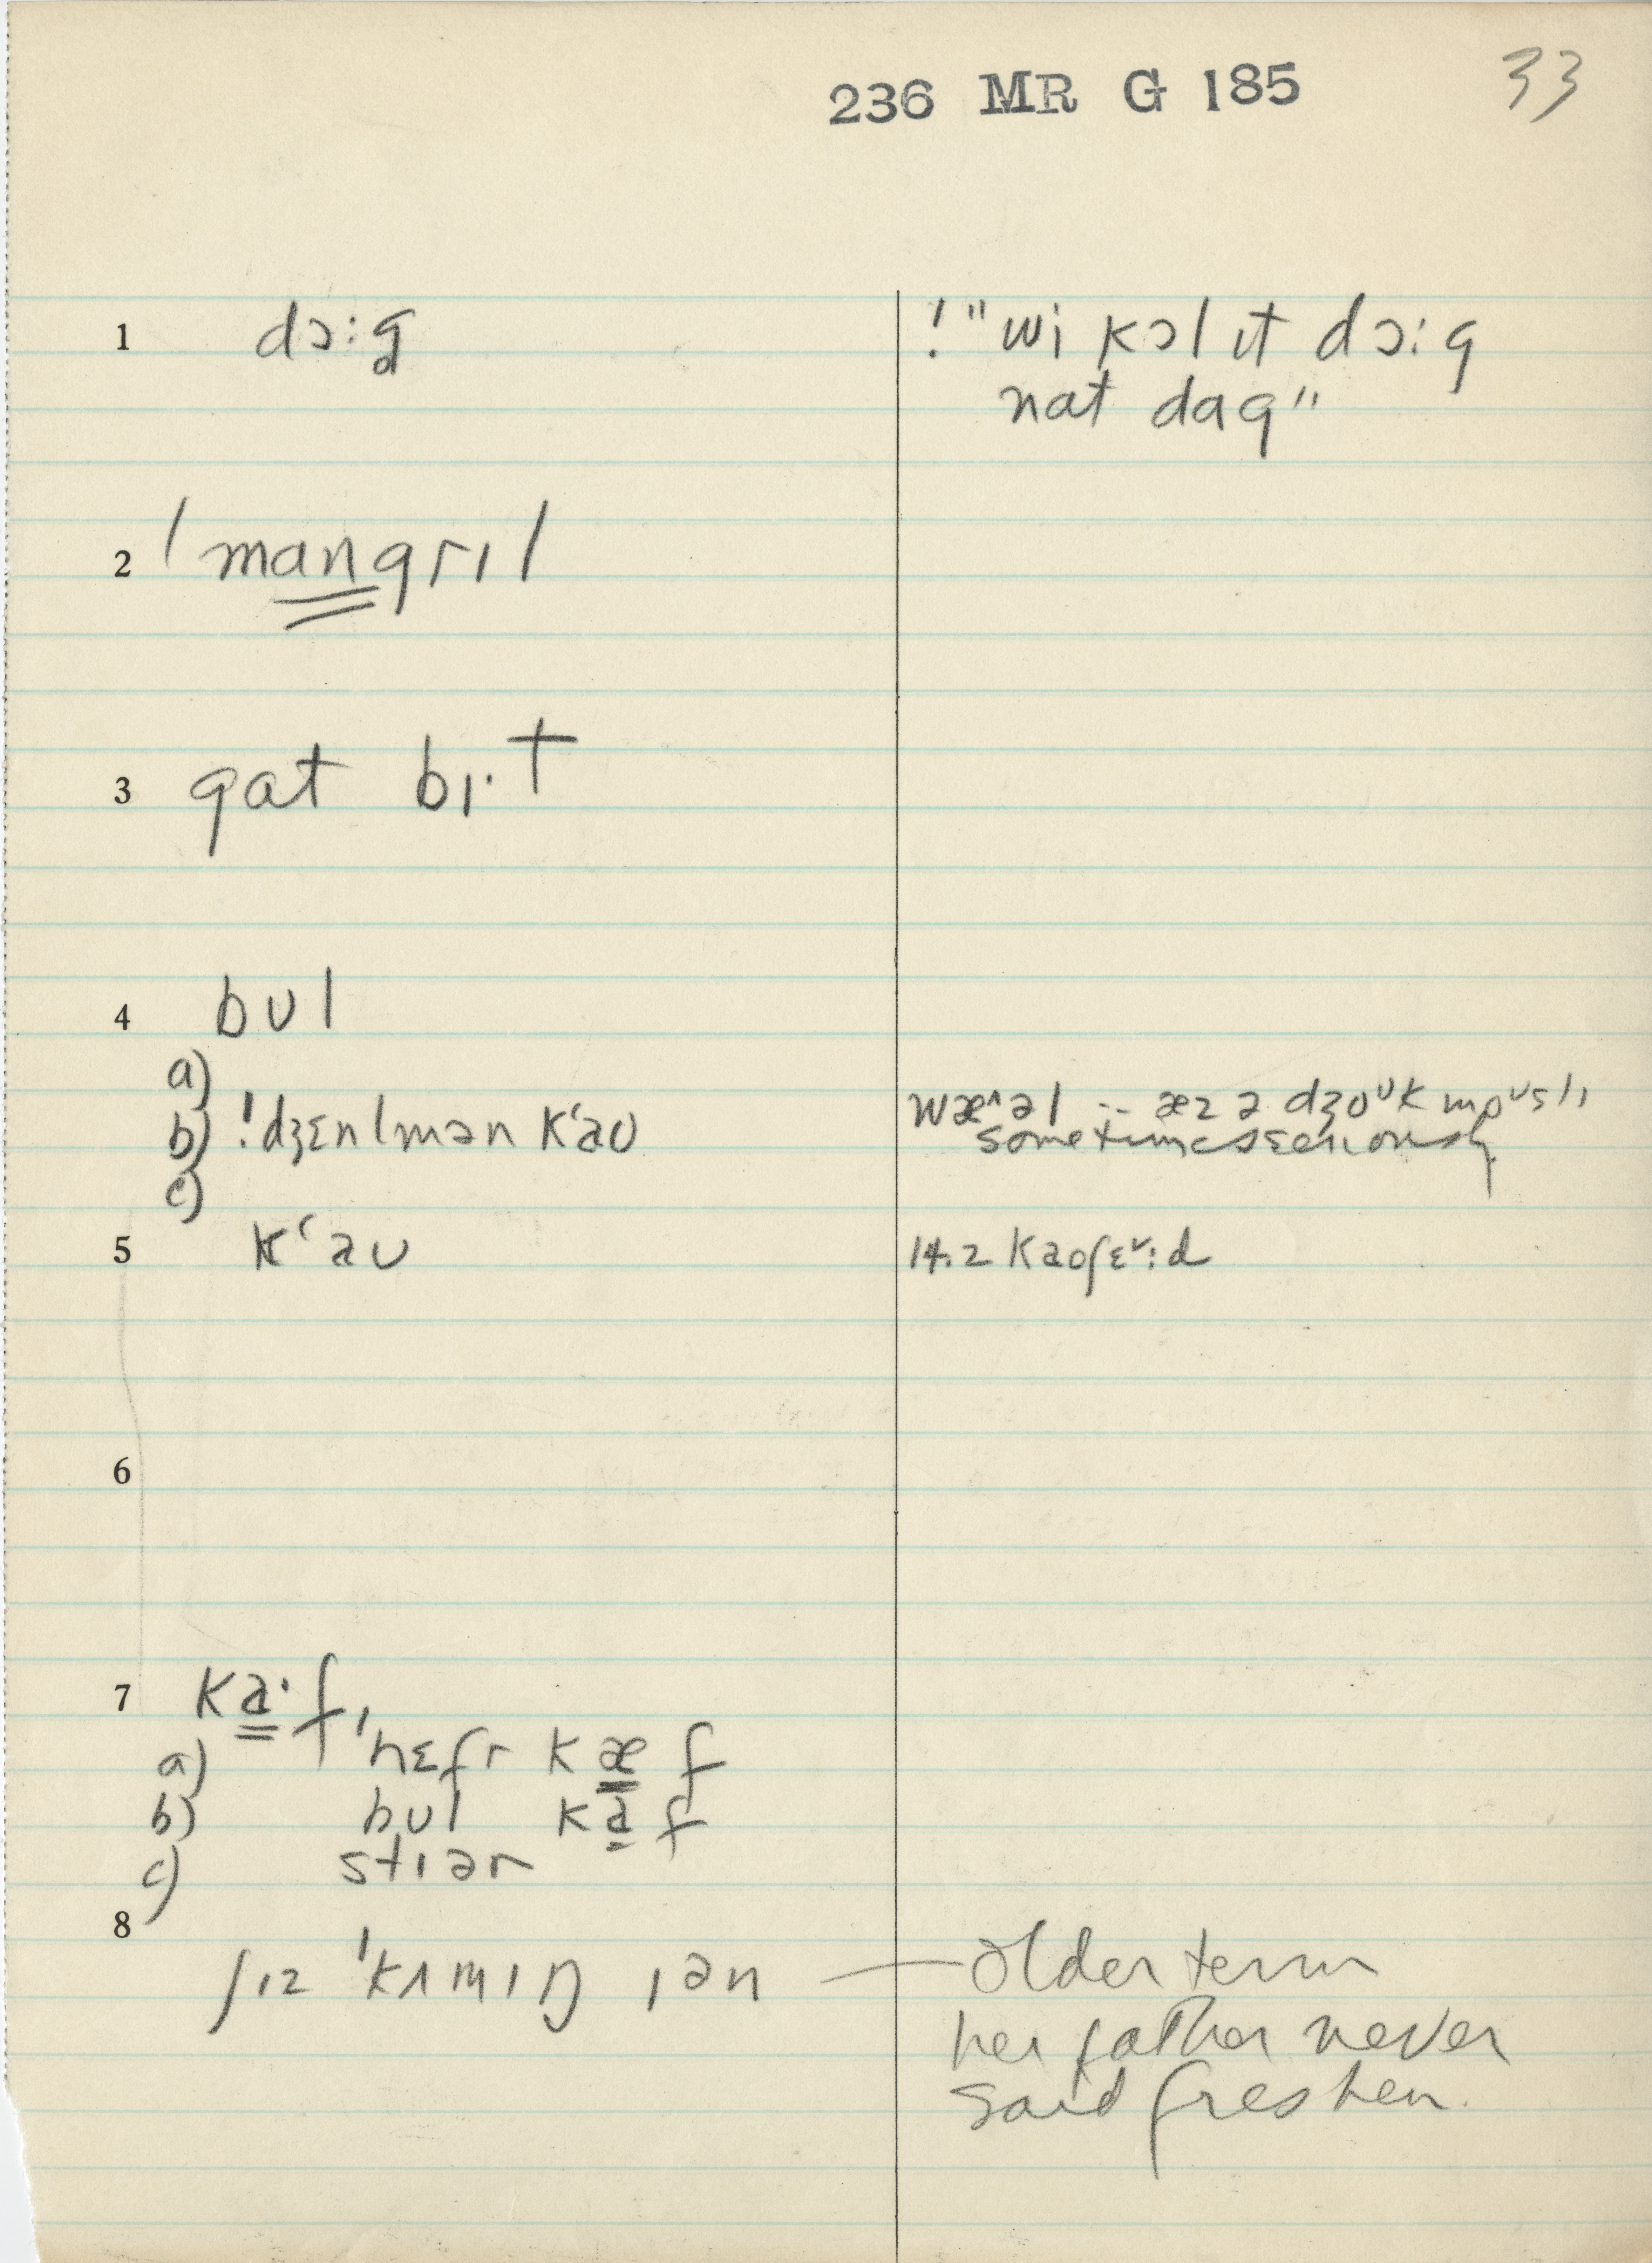 236 MR G 185 33
1 dɔ:g ! "wi kɔl ɪt dɔ:g
nat dag"
2 ˈmangrɪl
3 gat bɪ·t
4 bʊl
a)
b) !dʒɛnlmən k‘aʊ æz ə dʒoᶷk moᶷslɪ
sometimes seriously.
c)
5 k‘aʊ 14.2 kaoʃɛᵛ:d
6
7 ka·f,
a) ˈhɛfr kæf
b) bʊl kaf
c) stɪər
8
ʃɪz ˈkʌmɪŋ ɪən — older term
her father never
said freshen.